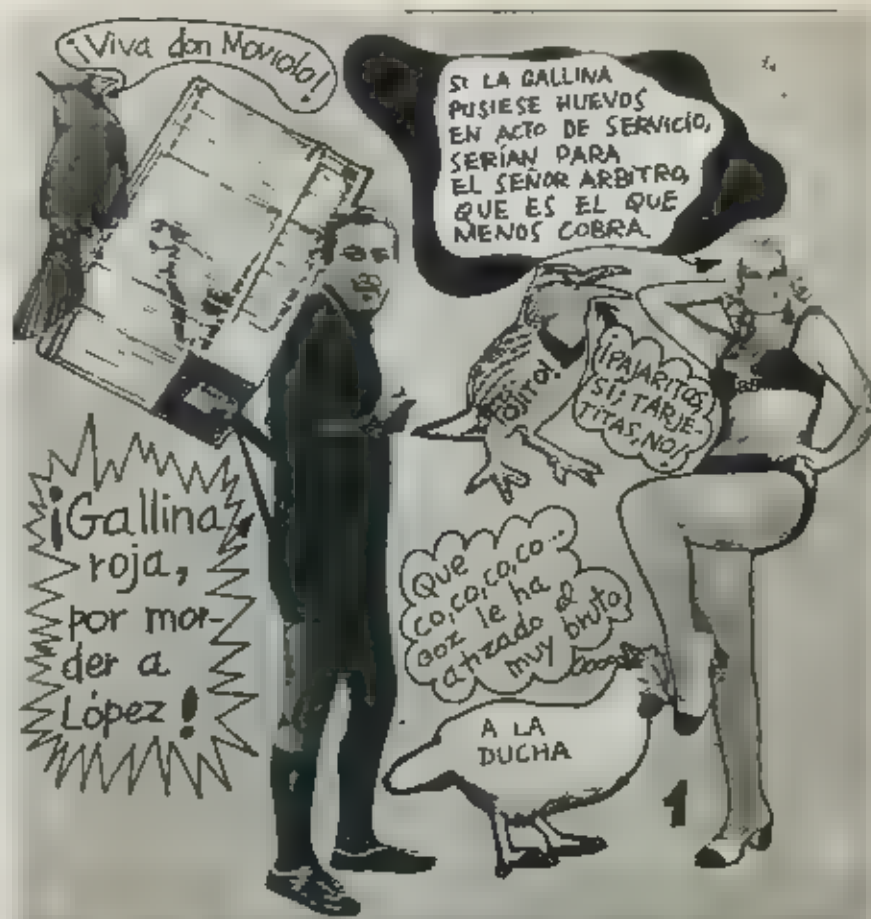 ¡Viva don Moviola!
SI LA GALLINA
PUSIESE HUEVOS
EN ACTO DE SERVICIO,
SERÍAN PARA
EL SEÑOR ARBITRO,
QUE ES EL QUE
MENOS COBRA.
¡PAJARITOS,
SI; TARJE-
TITAS, NO!
¡Gallina
roja,
por mor-
der a
López!
Que
co, co, co, co...
coz le ha
atizado el
muy bruto
A LA
DUCHA
1